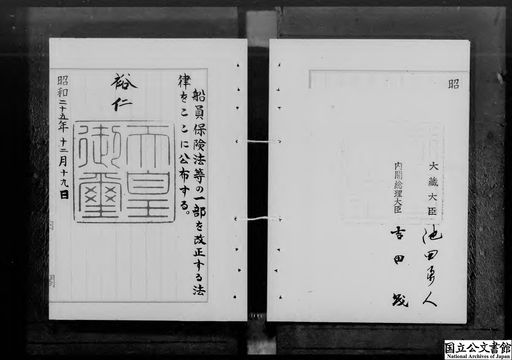 船員保険法等の一部を改正する法
律をここに公布する。
裕仁
天皇
御璽
昭和二十五年十二月十九日
昭
大蔵大臣 池田勇人
内閣総理大臣 吉田茂
国立公文書館
National Archives of Japan